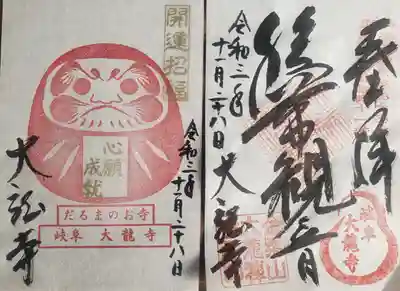 開運招福
心願
成就
令和三年十一月二十八日
大龍寺
だるまのお寺
岐阜 大龍寺
奉拝
令和三年
十一月二十八日
大龍寺
岐阜
大龍寺